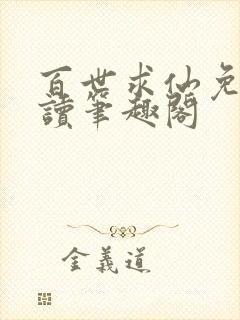 百世求仙免
讀筆趣閣
金義道